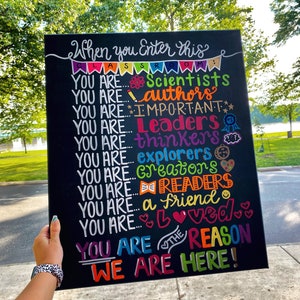 When you Enter this
CLASSROOM
YOU ARE... Scientists
YOU ARE... authors
YOU ARE... IMPORTANT
YOU ARE... Leaders
YOU ARE... thinkers
YOU ARE... explorers
YOU ARE... Creators
YOU ARE... READERS
YOU ARE... a friend
YOU ARE... Loved
YOU ARE the REASON
WE ARE HERE!